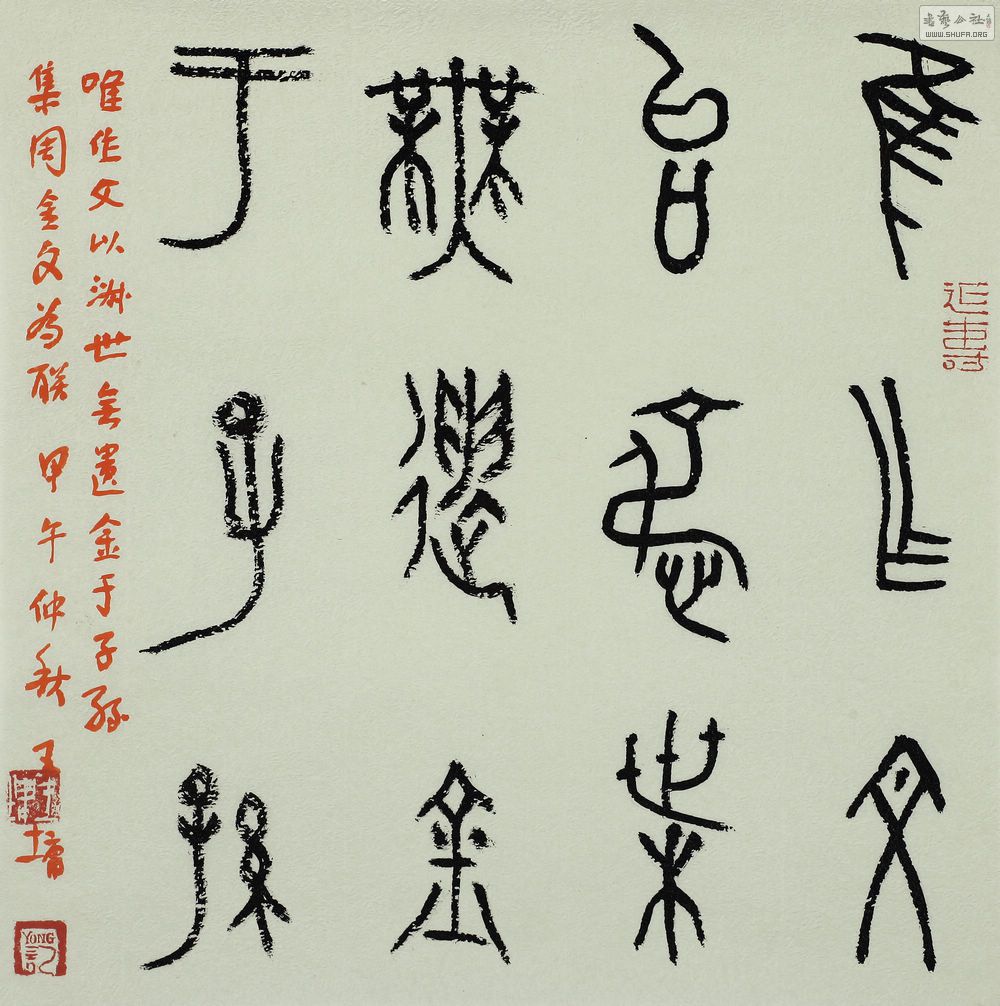 书艺公社
WWW.SHUFA.ORG
隹乍文
台枼
無遺金
于子孫
唯作文以淑世無遺金于子孫
集周金文為联 甲午仲秋 王墉
YONG